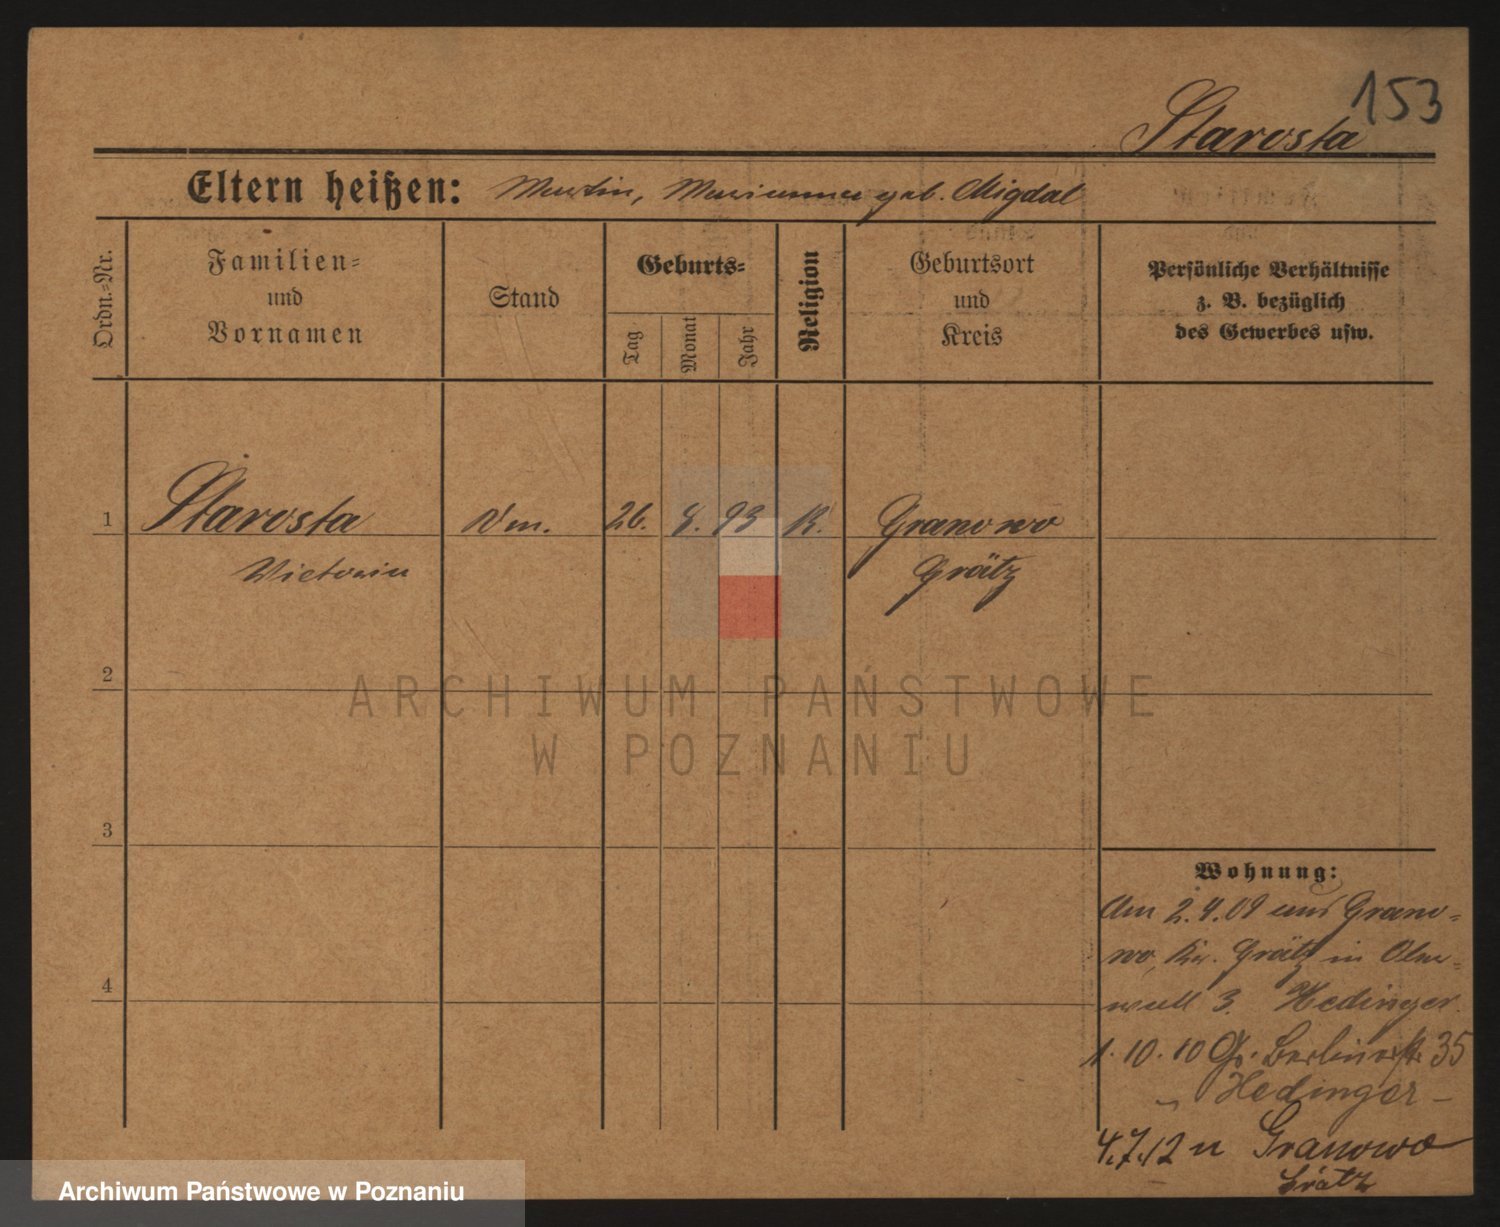 153
Starosta
Eltern heißen: Martin, Marianna geb. Migdal
Ordn.-Nr.
Familien-
und
Vornamen
Stand
Geburts-
Tag
Monat
Jahr
Religion
Geburtsort
und
Kreis
Persönliche Verhältnisse
z. B. bezüglich
des Gewerbes usw.
1
Starosta
26. 8. 93 K. Granowo
Victoria
Grätz
2
ARCHIWUM PAŃSTWOWE
W POZNANIU
3
Wohnung:
Am 2.4.09 aus Grano-
wo, Kr. Grätz in
3. Hedinger.
1.10.10 Gr. Berlinerstr 35
Hedinger -
4.7.12 n Granowo
Grätz
4
Archiwum Państwowe w Poznaniu